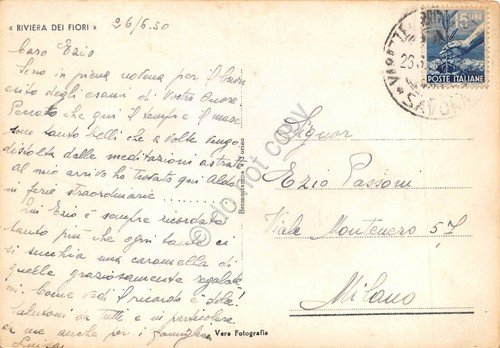 « RIVIERA DEI FIORI »
26/6.50
Caro Ezio
Sono in piena novena per il buon
esito degli esami di Vostro Enore
Peccato che qui il tempo e il mare
sono tanto belli che a volte vengo
distolta dalle meditazioni astratte
al mio arrivo ho trovato qui Aldo
in ferie straordinarie
Lui Ezio è sempre ricordato
tanto più che ogni tanto ci
si succhia una caramella di
quelle graziosamente regalate
mi. Come vedi il ricordo è
Salutoni da tutti e in particolare
da me anche per i famigliari
Luisa
Vera Fotografia
Bromofototecnica
15 LIRE
POSTE ITALIANE
VARAZZE
SAVONA
Signor
Ezio Passoni
Viale Montenero 57
Milano
do not copy